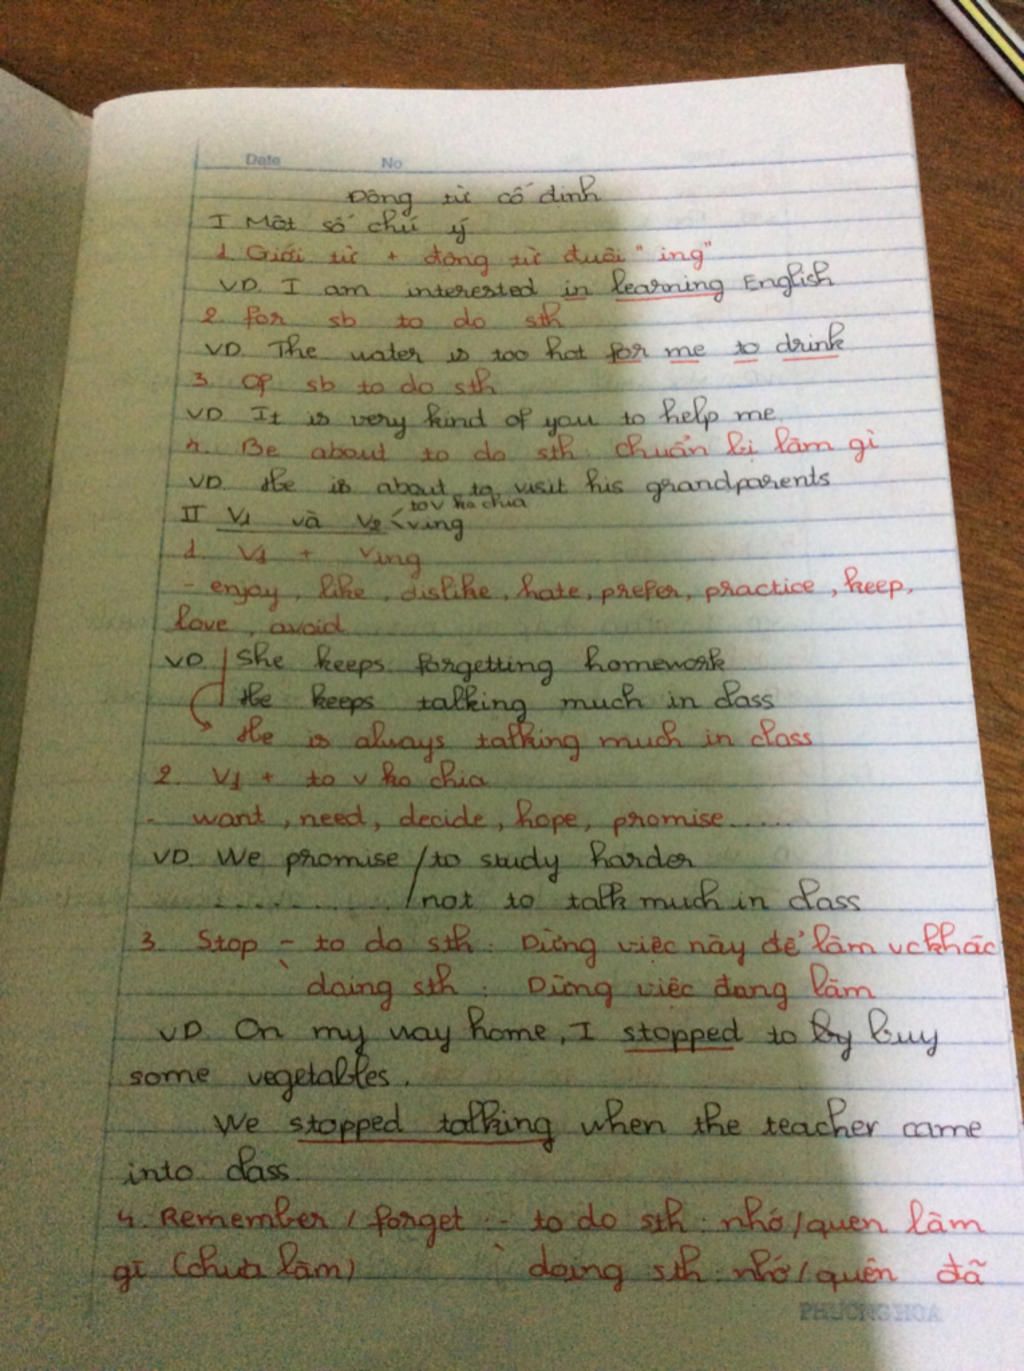 Date No
Động từ cố định
I Một số chú ý
1. Giới từ + động từ đuôi "ing"
VD. I am interested in learning English
2. for sb to do sth
VD. The water is too hot for me to drink
3. Of sb to do sth
VD. It is very kind of you to help me
4. Be about to do sth: chuẩn bị làm gì
VD. He is about to visit his grandparents
to V ko chia
II V1 và V2 < ving
1. V1 + Ving
- enjoy, like, dislike, hate, prefer, practice, keep,
love, avoid
VD She keeps forgetting homework
He keeps talking much in class
He is always talking much in class
2. V1 + to v ko chia
- want, need, decide, hope, promise.....
VD. We promise / to study harder
............... / not to talk much in class
3. Stop - to do sth: Dừng việc này để làm vc khác
doing sth: Dừng việc đang làm
VD. On my way home, I stopped to by buy
some vegetables.
We stopped talking when the teacher came
into class.
4. Remember / forget : - to do sth: nhớ/quen làm
gì (chưa làm) doing sth: nhớ/quên đã
PHUONG HOA